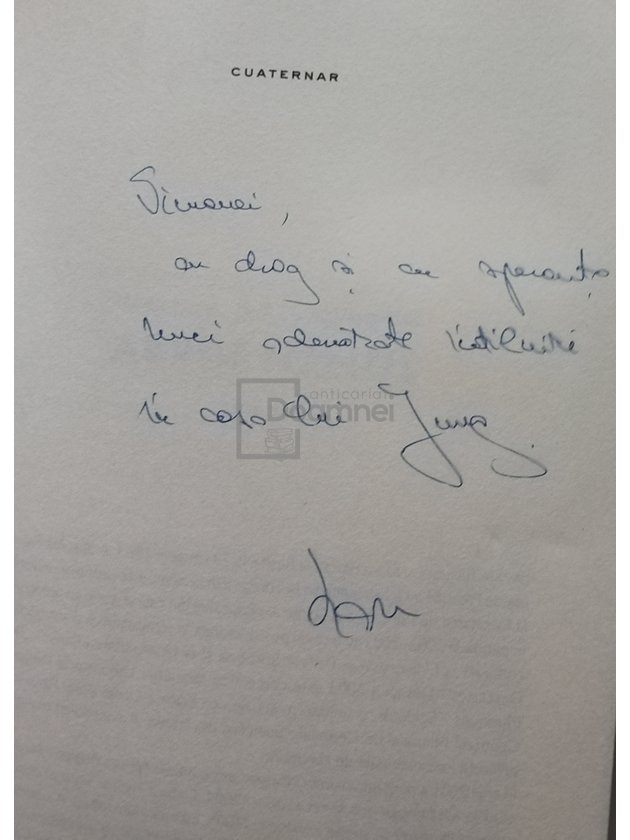 CUATERNAR
Simonei,
cu drag și cu speranța
unei adevărate întîlniri
în casa lui Jung.
anticariat
Doamnei
Dan